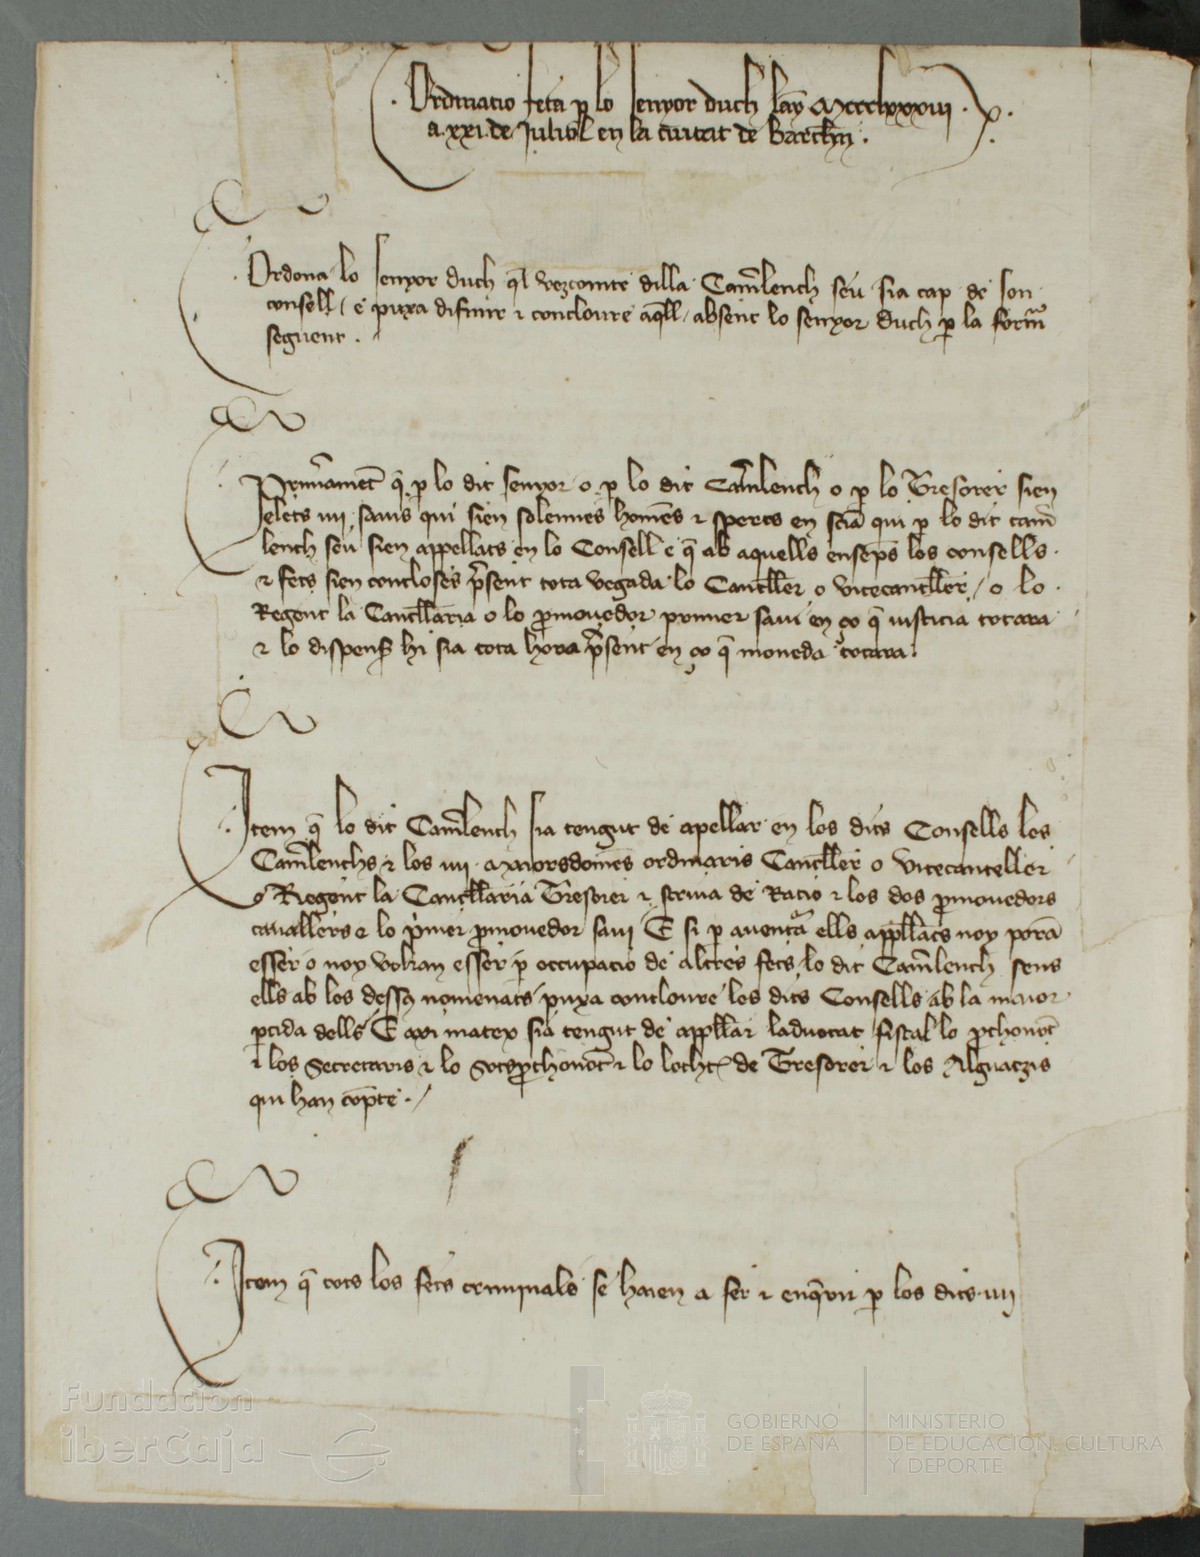 Ordinacio feta p lo senyor duch lāy Mccclxxxiii .
a xxi de Juliol en la ciutat de Barchn̄ .
Ordona lo senyor duch q̄l vezcomte dilla Cam̄lench seu sia cap de son
consell / e puxa difinir ⁊ concloure aq̄ll / absent lo senyor duch p la forma
seguent .
Prim̄ament q̄ p lo dit senyor o p lo dit Cam̄lench o p lo Tresorer sien
elets iiii savis qui sien solennes homēs ⁊ sperts en sciā qui p lo dit cam̄
lench seu sien appellats en lo Consell e q̄ ab aquells ensēps los consells .
⁊ fets sien concloses p̄sent tota vegada lo Canc̄ller o vicecanc̄ller / o lo .
Regent la Canc̄llaria o lo p̄movedor primer savi en ço q̄ iusticia tocara
⁊ lo dispens̄ hi sia tota hora p̄sent en ço q̄ moneda tocara .
Item q̄ lo dit Cam̄lench sia tengut de apellar en los dits Consells los
Cam̄lenchs ⁊ los iiii maiorsdomēs ordinaris Canc̄ller o vicecanceller
o Regent la Canc̄llaria Tresorer ⁊ scriva de Racio ⁊ los dos p̄movedors
cavallers e lo p̄mer p̄movedor savi E si p aventa ells app̄llats noy porā
esser o noy volran esser p occupacio de altres fets / lo dit Cam̄lench sens
ells ab los dessꝯ nomenats / puxa concloure los dits Consells ab la maior
p̄tida dells E axi matex sia tengut de app̄llar laduocat fiscal lo p̄thonot̄
⁊ los Secretaris ⁊ lo sotsp̄thonot̄ ⁊ lo locht̄ de Tresorer ⁊ los Alguatzis
qui han cōpte . /
Item q̄ tots los fets criminals se haien a fer ⁊ enq̄rir p los dits iiii
Fundación
iberCaja
GOBIERNO
DE ESPAÑA
MINISTERIO
DE EDUCACIÓN, CULTURA
Y DEPORTE